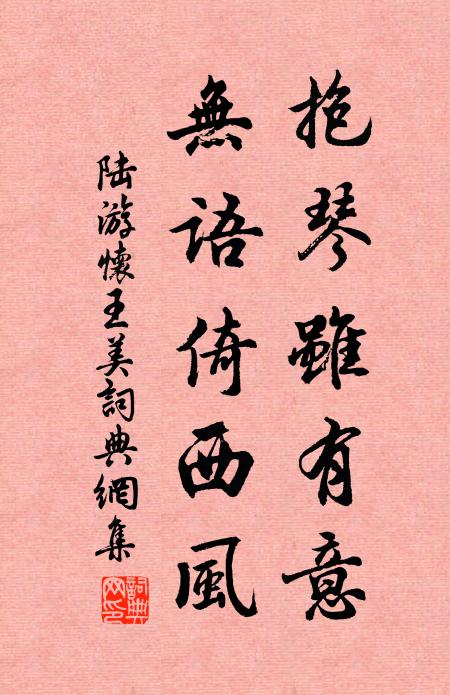 抱琴雖有意
無語倚西風
陸游懷王美詞典網集
詞典網印